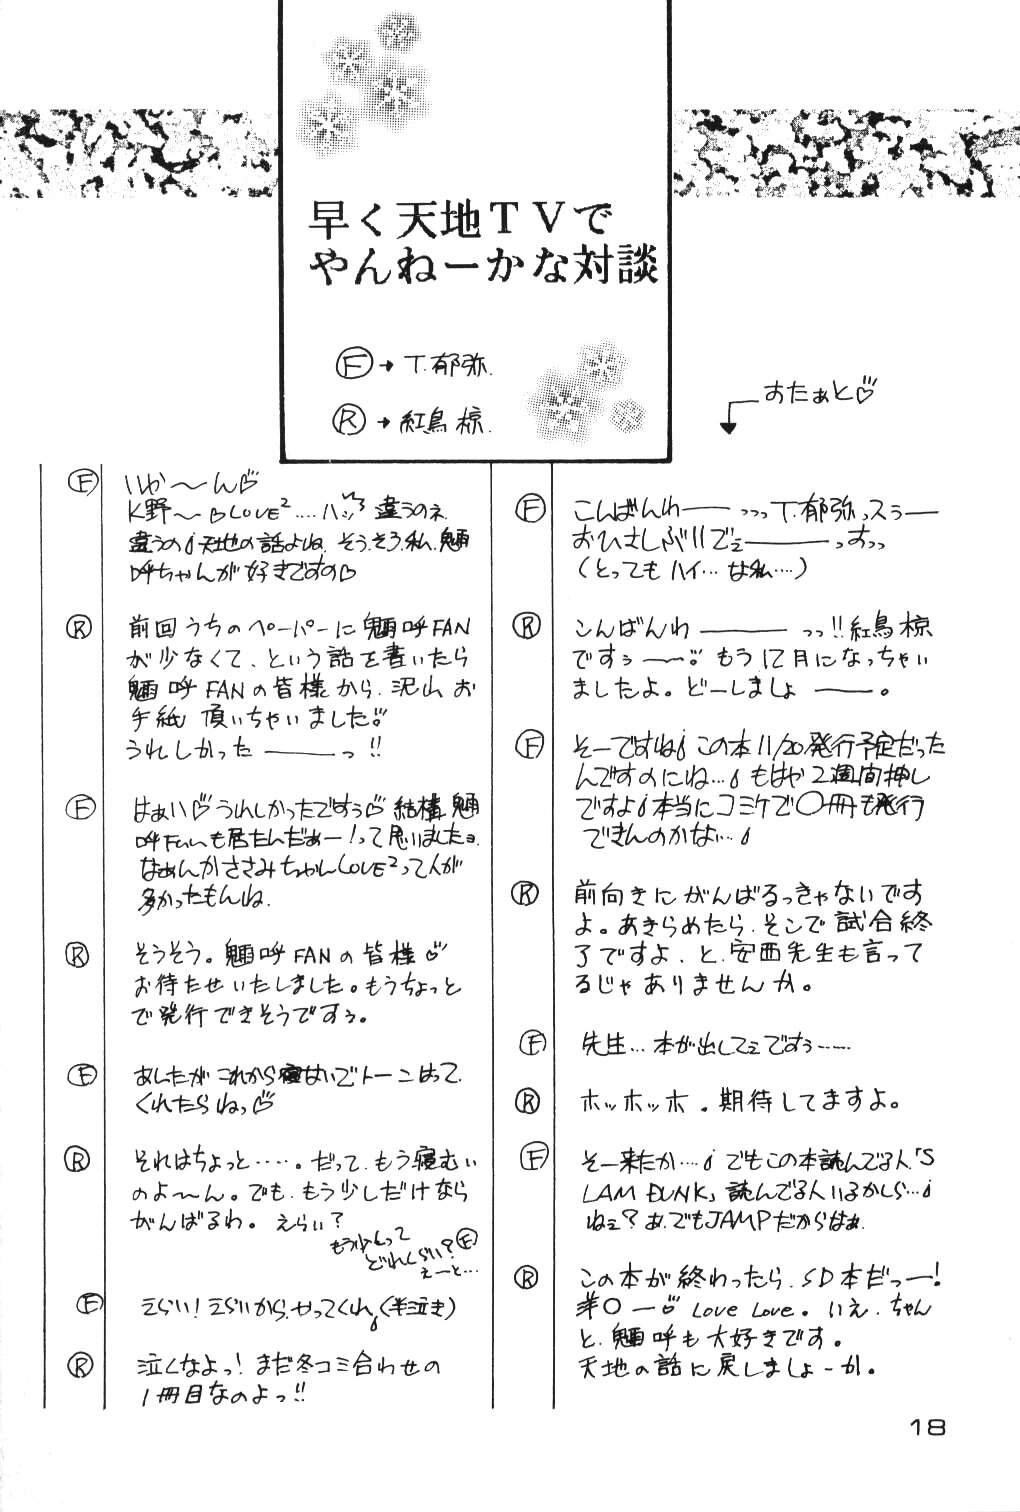 早く天地TVで
やんねーかな対談
Ⓕ→T.郁弥.
Ⓡ→紅鳥 椋.
すたぁと♡
Ⓕ こんばんわ――っっっT.郁弥っスぅ―
おひさしぶりでぇ―――っすっっ
(とってもハイ…な私…)
Ⓡ こんばんわ―――っっ!!紅鳥 椋
ですぅ――。もう12月になっちゃい
ましたよ。どーしましょ――。
Ⓕ そーですね この本11/20発行予定だった
んですのにね… もはや2週間押し
ですよ 本当にコミケで〇冊も発行
できんのかな…
Ⓡ 前向きにがんばるっきゃないです
よ。あきらめたら、そこで試合終
了ですよ、と、安西先生も言って
るじゃありませんか。
Ⓕ 先生…本が出してぇですぅ……
Ⓡ ホッホッホ。期待してますよ。
Ⓕ そー来たか… でもこの本読んでる人「S
LAM DUNK」読んでる人いるかしら…
ねぇ?あ、でもJAMPだからはぁ.
Ⓡ この本が終わったら、SD本だっー!
〇ー♡ LOVE LOVE。いえ、ちゃん
と、魎呼も大好きです。
天地の話に戻しましょーか。
Ⓕ いか〜ん♡
K野〜♡LOVE²….ハッ 違うのネ
違うの 天地の話よね、そう、そう、私、魎
呼ちゃんが好きですの♡
Ⓡ 前回うちのペーパーに魎呼FAN
が少なくて、という話を書いたら
魎呼FANの皆様から、沢山お
手紙 頂いちゃいました♡
うれしかった――っ!!
Ⓕ はぁい♡うれしかったですぅ♡結構、魎
呼Fanも居たんだぁー!って思いましたョ.
なぁんかささみちゃんLOVE²って人が
多かったもんね.
Ⓡ そうそう。魎呼FANの皆様♡
お待たせいたしました。もうちょっと
で発行できそうですぅ。
Ⓕ あしたがこれから寝ないでトーンはって
くれたらねっ♡
Ⓡ それはちょっと……。だって、もう寝むい
のよ〜ん。でも、もう少しだけなら
がんばるわ。えらい?
もう少しって
どれくらい?Ⓕ
えーと…
Ⓕ えらい!えらいから、やってくれ(半泣き)
Ⓡ 泣くなよっ!まだ冬コミ合わせの
1冊目なのよっ!!
18